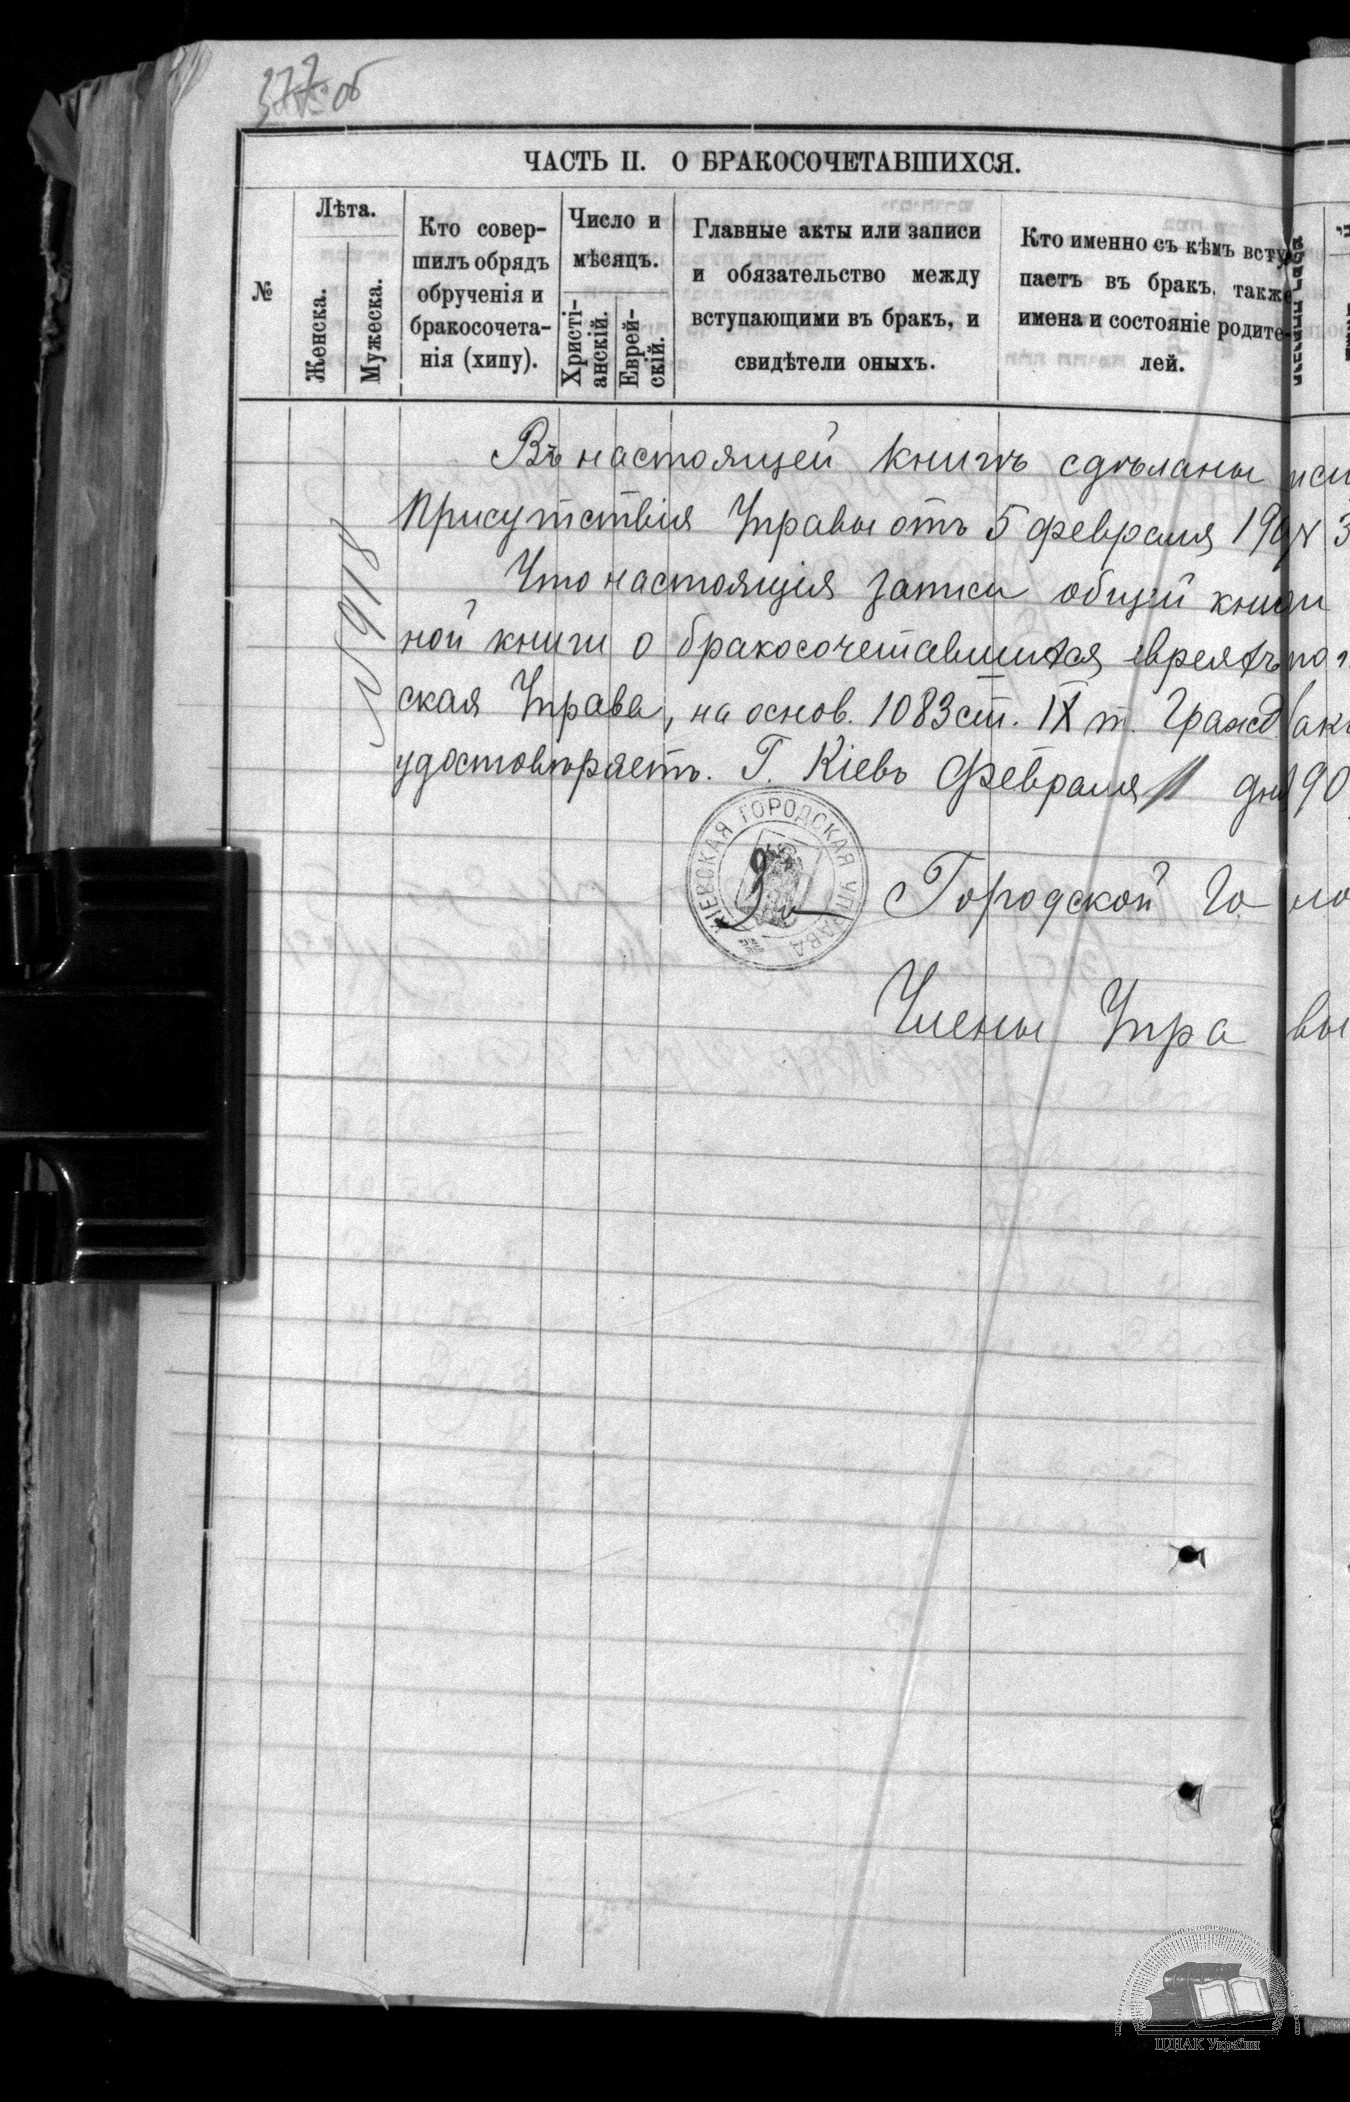 об
ЧАСТЬ II. О БРАКОСОЧЕТАВШИХСЯ.
№
Лѣта.
Женска.
Мужеска.
Кто совер-
шилъ обрядъ
обрученія и
бракосочета-
нія (хипу).
Число и
мѣсяцъ.
Христі-
анскій.
Еврей-
скій.
Главные акты или записи
и обязательство между
вступающими въ бракъ, и
свидѣтели оныхъ.
Кто именно съ кѣмъ всту
паетъ въ бракъ, также
имена и состояніе родите-
лей.
Въ настоящей книгѣ сдѣланы
Присутствія Управы отъ 5 февраля
Что настоящія записи общей книги
ной книги о бракосочетавшихся евреяхъ по
ская Управа, на основ. 1083 ст. IX т. Гражд.
удостовѣряетъ. Г. Кіевъ Февраля 11 дня 190
№ 918
КІЕВСКАЯ ГОРОДСКАЯ УПРАВА
Городской Голо
Члены Управы
ЦДІАК України